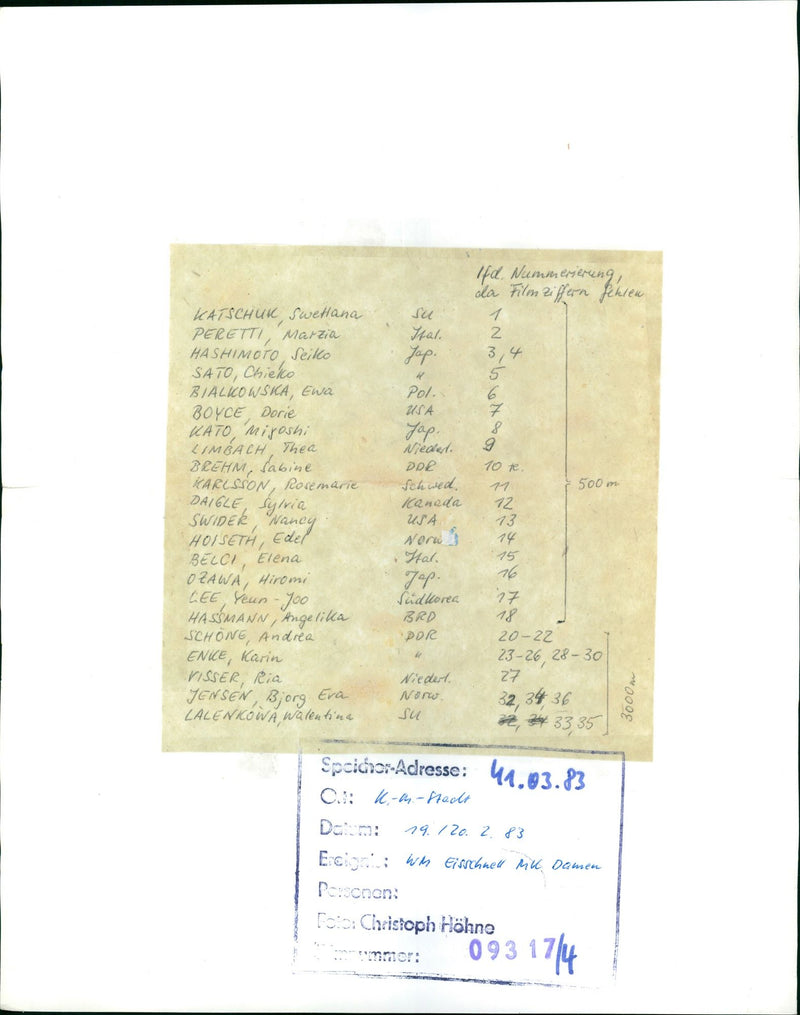 lfd. Nummerierung,
da Filmziffern fehlen
KATSCHUK, Swetlana SU 1
PERETTI, Marzia Ital. 2
HASHIMOTO, Seiko Jap. 3, 4
SATO, Chieko " 5
BIALKOWSKA, Ewa Pol. 6
BOYCE, Dorie USA 7
KATO, Miyoshi Jap. 8
LIMBACH, Thea Niederl. 9
BREHM, Sabine DDR 10 r.
KARLSSON, Rosemarie Schwed. 11 500m
DAIGLE, Sylvia Kanada 12
SWIDER, Nancy USA 13
HOISETH, Edel Norw 14
BELCI, Elena Ital. 15
OZAWA, Hiromi Jap. 16
LEE, Yeun-Joo Südkorea 17
HASSMANN, Angelika BRD 18
SCHÖNE, Andrea DDR 20-22
ENKE, Karin " 23-26, 28-30
VISSER, Ria Niederl. 27
JENSEN, Bjorg Eva Norw. 32, 34 36 3000m
LALENKOWA, Walentina SU 33, 35
Speicher-Adresse: 41.03.83
Ort: K.-M.-Stadt
Datum: 19./20. 2. 83
Ereignis: WM Eisschnell MK Damen
Personen:
Foto: Christoph Höhne
Filmnummer: 093 17/4